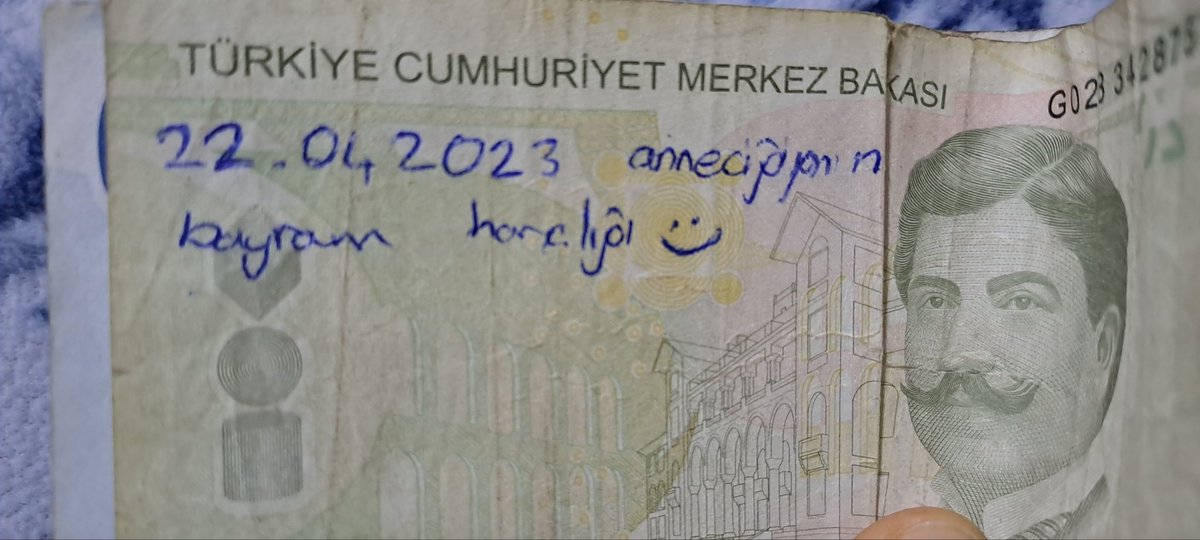 TÜRKİYE CUMHURİYET MERKEZ BAKASI
G023 342875
22.04.2023 anneciğimin
bayram harçlığı :)